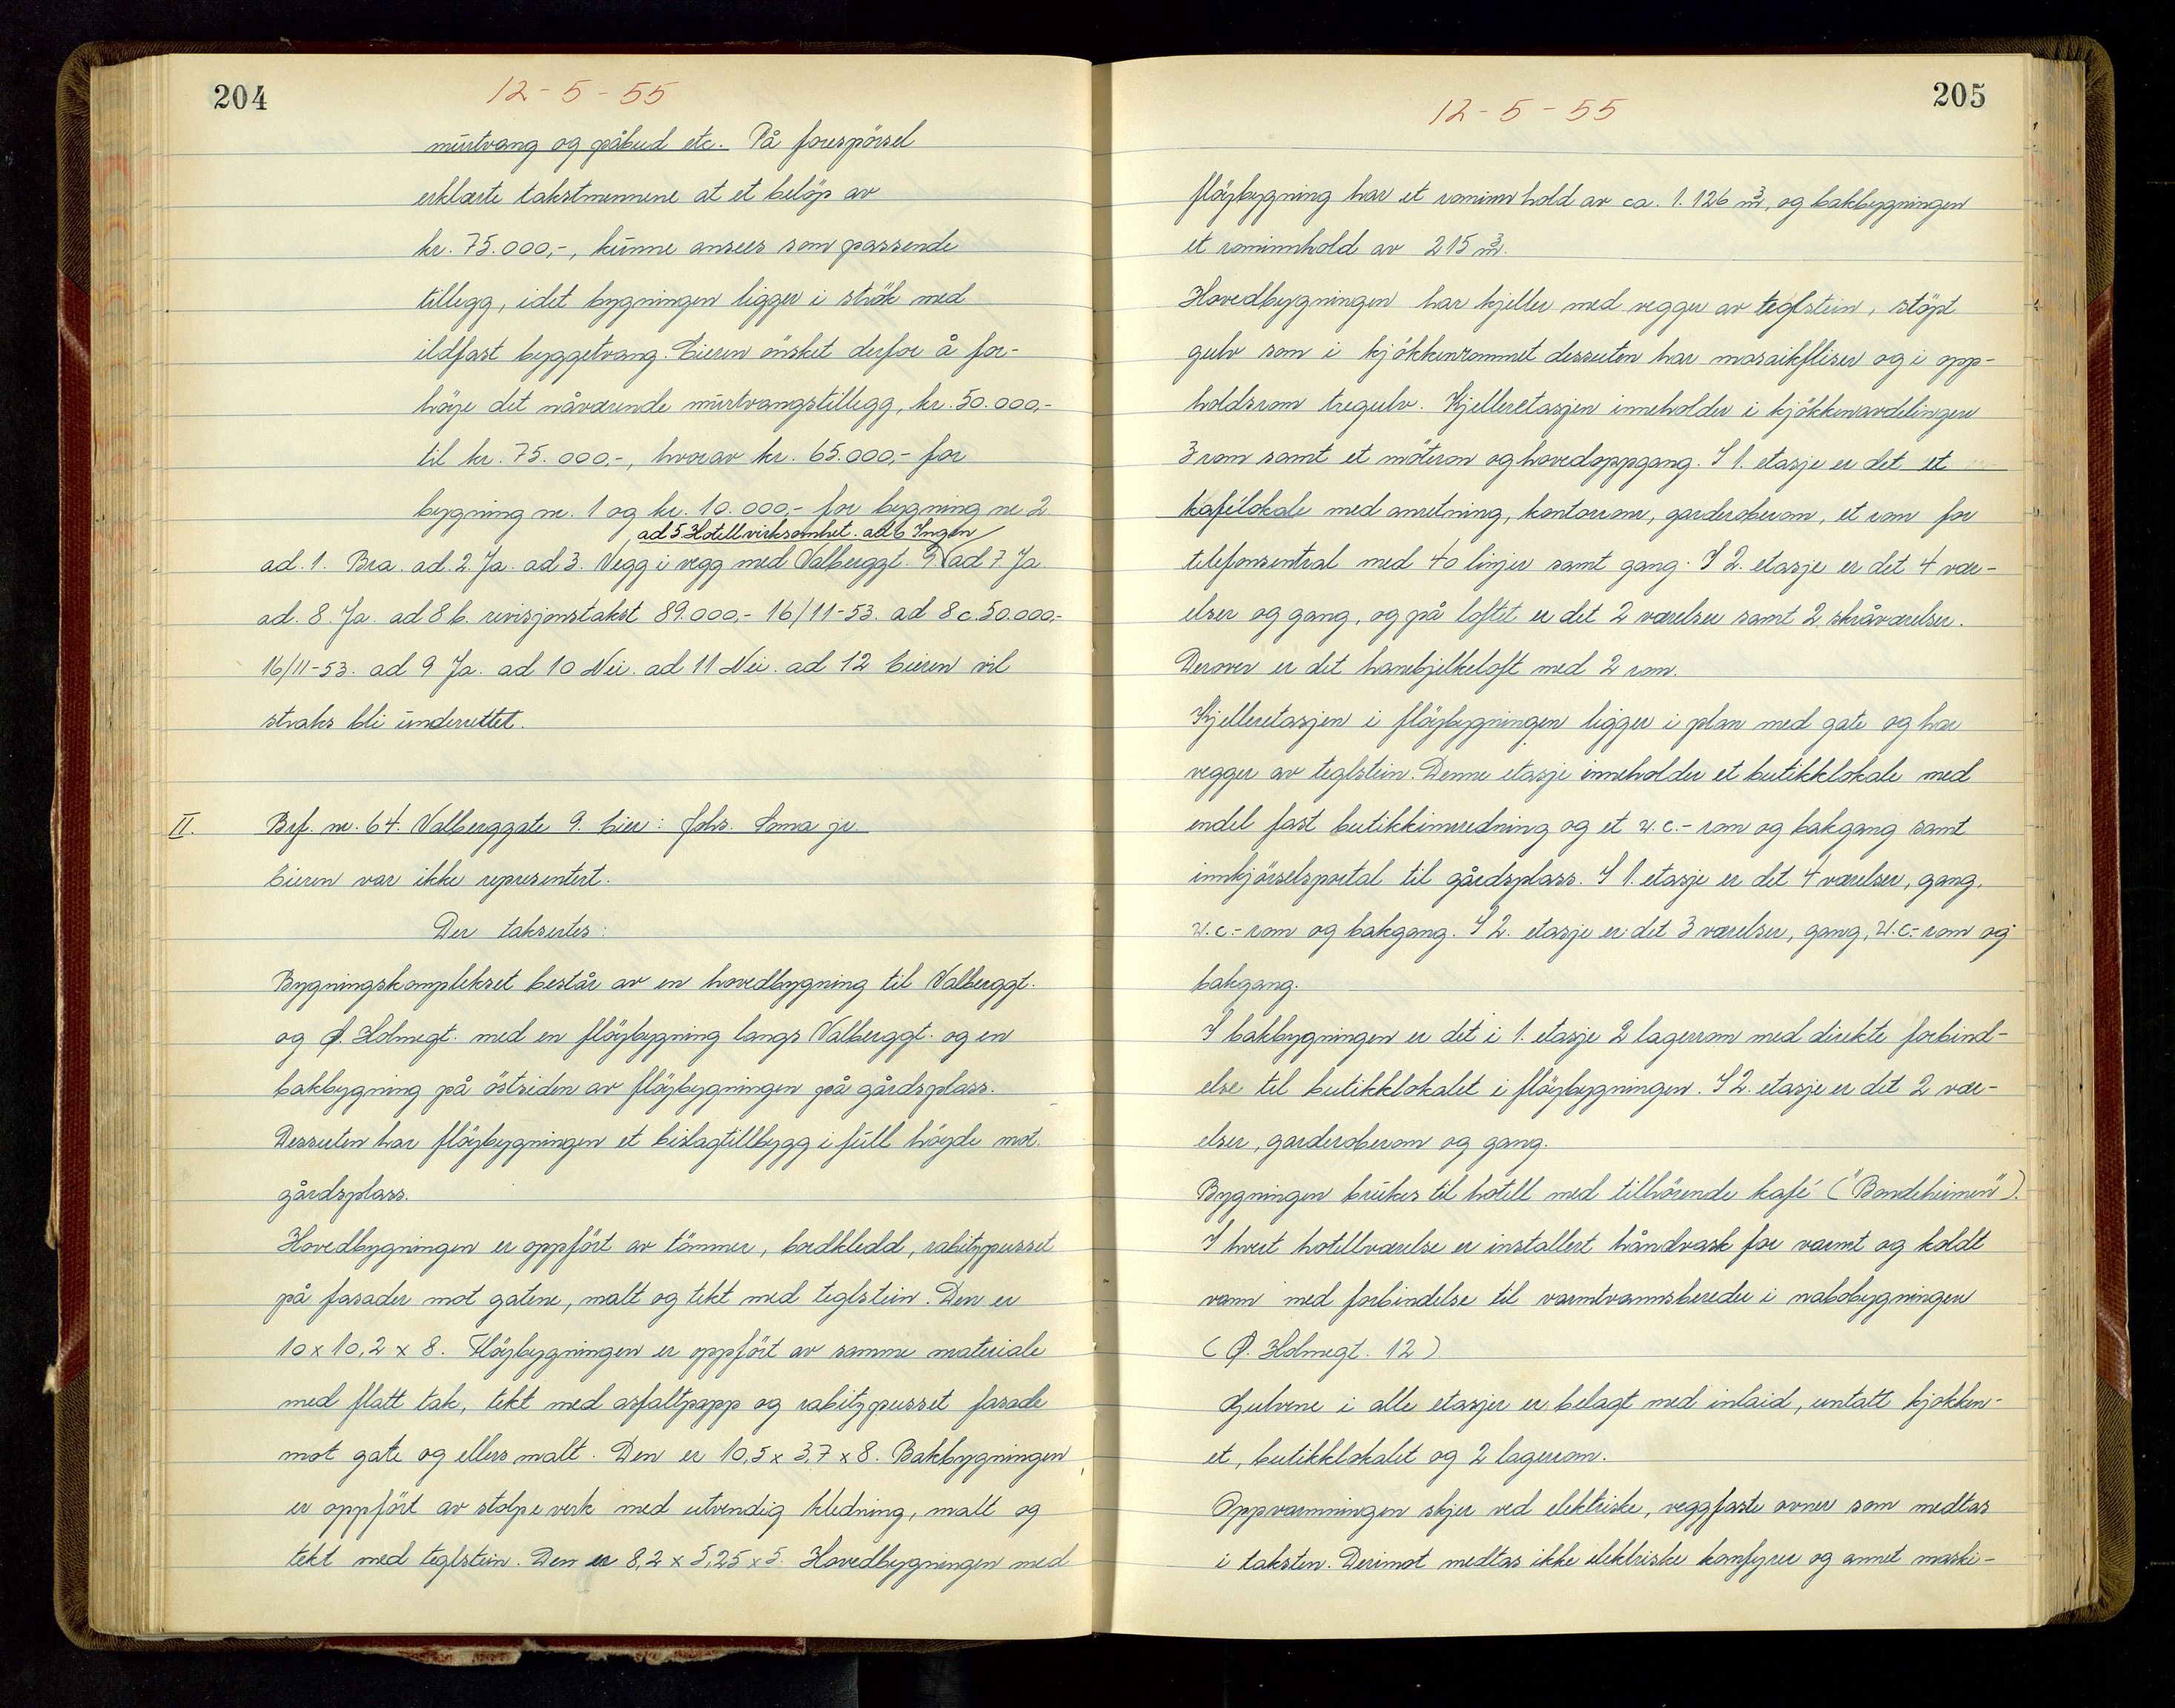 204
12-5-55
murtvang og påbud etc. På forespörsel
erklærte takstmennene at et belöp av
kr. 75.000,-, kunne ansees som passende
tillegg, idet bygningen ligger i strök med
ildfast byggetvang. Eieren önsket derfor å for-
höye det nåværende murtvangstillegg, kr. 50.000,-
til kr. 75.000,-, hvorav kr. 65.000,- for
bygning nr. 1 og kr. 10.000,- for bygning nr 2
ad 5 Hotellvirksomhet. ad 6 Ingen
ad. 1. Bra. ad. 2. Ja. ad 3. Vegg i vegg med Valberggt. 9. ad 7 Ja
ad. 8. Ja. ad 8 b. revisjonstakst 89.000,- 16/11-53. ad 8 c. 50.000,-
16/11-53. ad 9 Ja. ad 10 Nei. ad 11 Nei. ad 12 Eieren vil
straks bli underrettet.
II. Brf. nr. 64. Valberggate 9. Eier: Johs. Soma jr.
Eieren var ikke representert.
Der taksertes:
Bygningskomplekset består av en hovedbygning til Valberggt.
og Ø. Holmegt. med en flöybygning langs Valberggt. og en
bakbygning på östsiden av flöybygningen på gårdsplass.
Dessuten har flöybygningen et bislagtillbygg i full höyde mot
gårdsplass.
Hovedbygningen er oppfört av tömmer, bordkledd, rabitzpusset
på fasader mot gatene, malt og tekt med teglstein. Den er
10 x 10,2 x 8. Flöybygningen er oppfört av samme materiale
med flatt tak, tekt med asfaltpapp og rabitzpusset fasade
mot gate og ellers malt. Den er 10,5 x 3,7 x 8. Bakbygningen
er oppfört av stolpeverk med utvendig kledning, malt og
tekt med teglstein. Den er 8,2 x 5,25 x 5. Hovedbygningen med
205
12-5-55
flöybygning har et rominnhold av ca. 1.126 m³, og bakbygningen
et rominnhold av 215 m³.
Hovedbygningen har kjeller med vegger av teglstein, stöpt
gulv som i kjökkenrommet dessuten har mosaikfliser og i opp-
holdsrom tregulv. Kjelleretasjen inneholder i kjökkenavdelingen
3 rom samt et möterom og hovedoppgang. I 1. etasje er det et
kafélokale med anretning, kontorrom, garderoberom, et rom for
telefonsentral med 40 linjer samt gang. I 2. etasje er det 4 vær-
elser og gang, og på loftet er det 2 værelser samt 2 skråværelser.
Derover er det hanebjelkeloft med 2 rom.
Kjelleretasjen i flöybygningen ligger i plan med gate og har
vegger av teglstein. Denne etasje inneholder et butikklokale med
endel fast butikkinnredning og et w.c.-rom og bakgang samt
innkjörselsportal til gårdsplass. I 1. etasje er det 4 værelser, gang,
w.c.-rom og bakgang. I 2. etasje er det 3 værelser, gang, w.c.-rom og
bakgang.
I bakbygningen er det i 1. etasje 2 lagerrom med direkte forbind-
else til butikklokalet i flöybygningen. I 2. etasje er det 2 vær-
elser, garderoberom og gang.
Bygningen brukes til hotell med tilhörende kafé ("Bondeheimen").
I hvert hotellværelse er installert håndvask for varmt og koldt
vann med forbindelse til varmtvannsbereder i nabobygningen
(Ø. Holmegt. 12)
Gulvene i alle etasjer er belagt med inlaid, untatt kjøkken-
et, butikklokalet og 2 lagerrom.
Oppvarmningen skjer ved elektriske, veggfaste ovner som medtas
i taksten. Derimot medtas ikke elektriske komfyrer og annet maski-